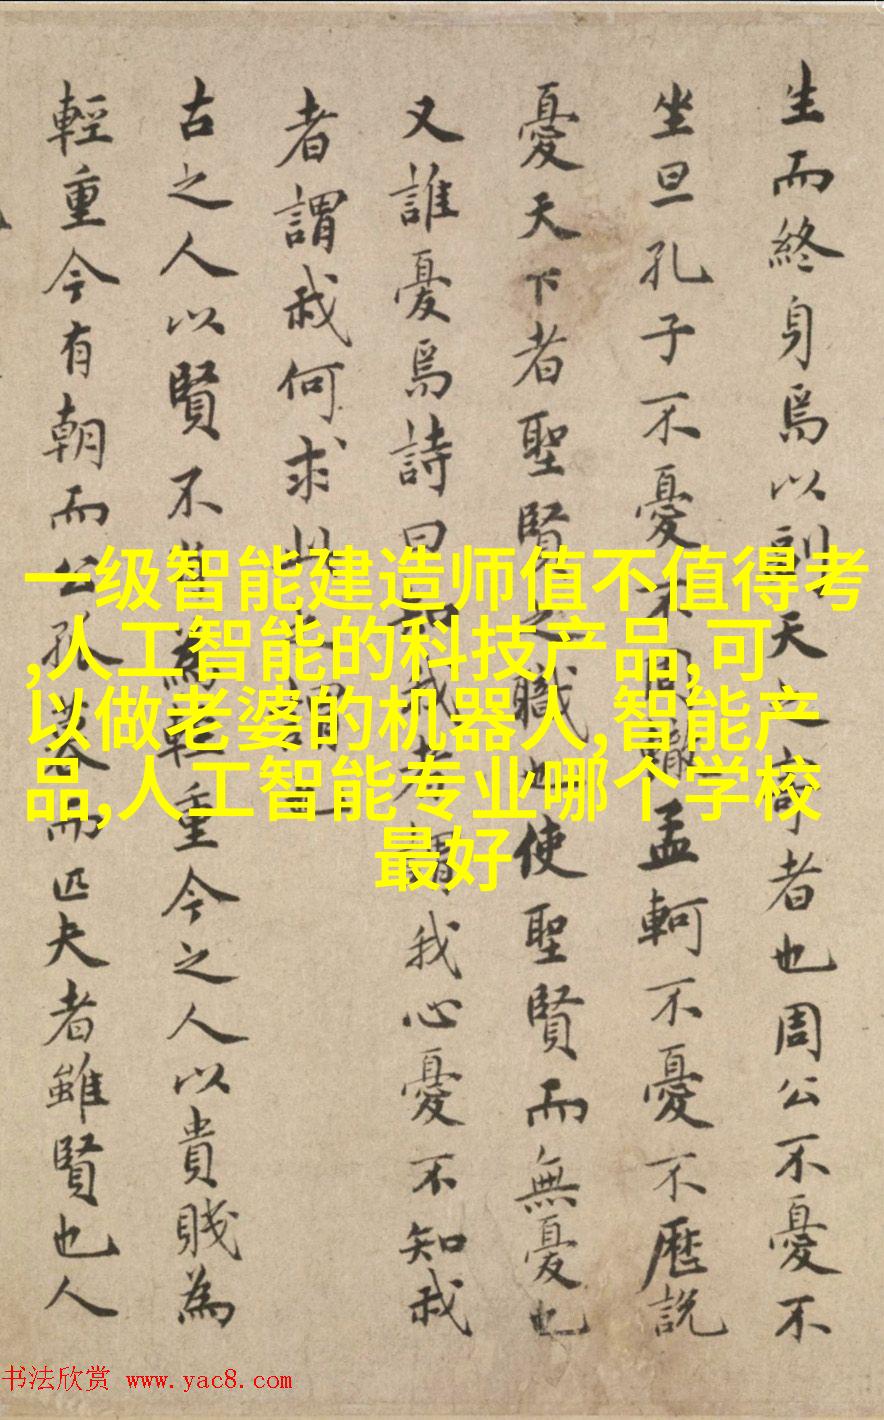 生而終身焉以副天之者也周公不憂不
坐旦孔子不憂不孟軻不憂不歷說
憂天下者聖賢之職也使聖賢而無憂也
又誰憂焉詩曰知我者謂我心憂不知我
者謂我何求此之謂也
古之人以賢不肖為輕重今之人以貴賤為
輕重今有朝而公孤暮而匹夫者雖賢也人
一级智能建造师值不值得考
,人工智能的科技产品,可
以做老婆的机器人,智能产
品,人工智能专业哪个学校
最好
书法欣赏 www.yac8.com